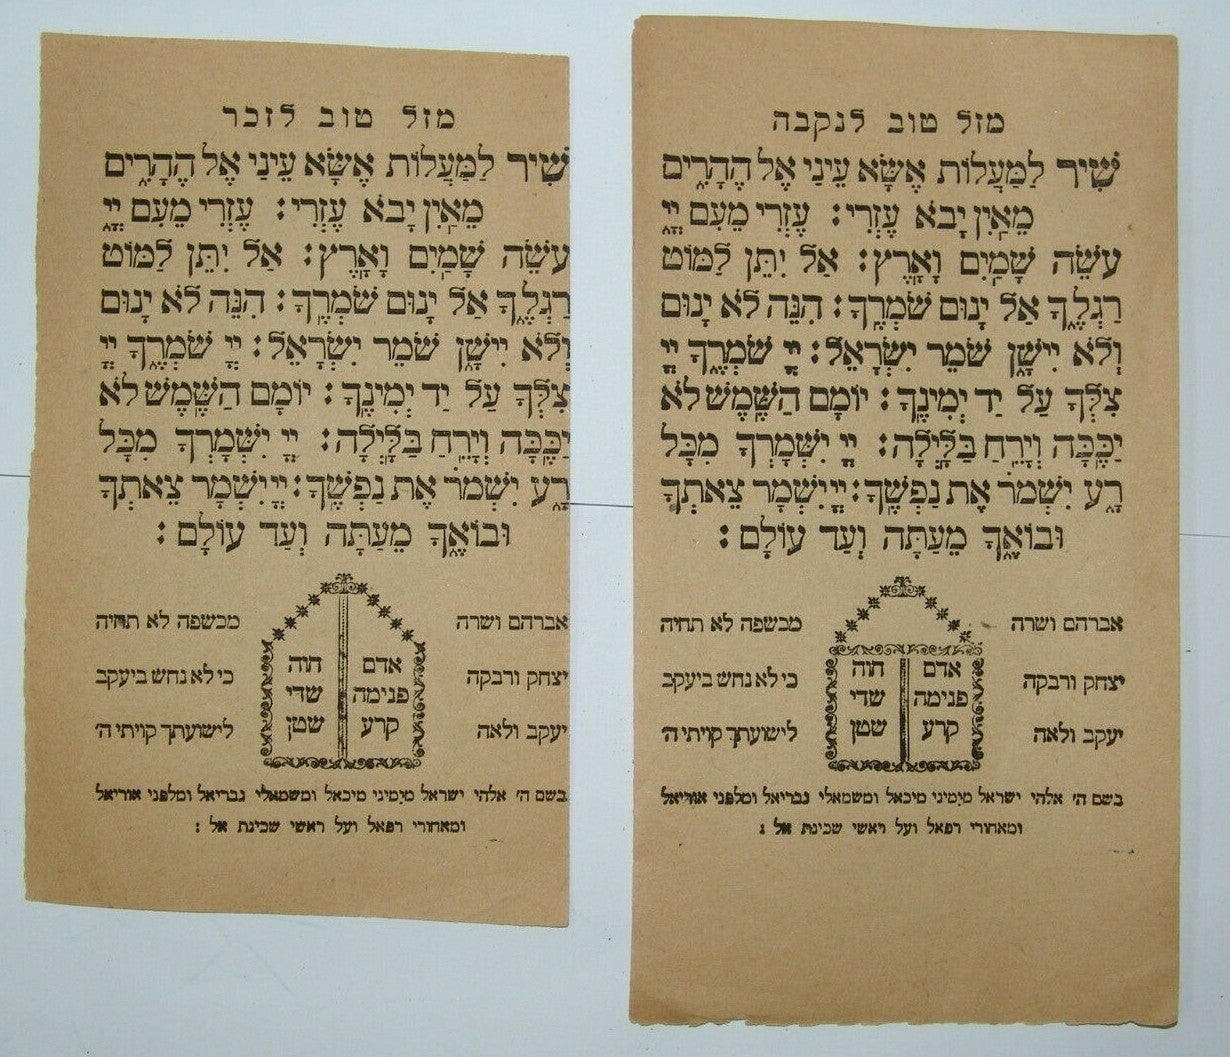 מזל טוב לזכר
שִׁיר לַמַּעֲלוֹת אֶשָּׂא עֵינַי אֶל הֶהָרִים
מֵאַיִן יָבֹא עֶזְרִי: עֶזְרִי מֵעִם יְיָ
עֹשֵׂה שָׁמַיִם וָאָרֶץ: אַל יִתֵּן לַמּוֹט
רַגְלֶךָ אַל יָנוּם שֹׁמְרֶךָ: הִנֵּה לֹא יָנוּם
וְלֹא יִישָׁן שֹׁמֵר יִשְׂרָאֵל: יְיָ שֹׁמְרֶךָ יְיָ
צִלְּךָ עַל יַד יְמִינֶךָ: יוֹמָם הַשֶּׁמֶשׁ לֹא
יַכֶּכָּה וְיָרֵחַ בַּלָּיְלָה: יְיָ יִשְׁמָרְךָ מִכָּל
רָע יִשְׁמֹר אֶת נַפְשֶׁךָ: יְיָ יִשְׁמָר צֵאתְךָ
וּבוֹאֶךָ מֵעַתָּה וְעַד עוֹלָם:
אברהם ושרה
יצחק ורבקה
יעקב ולאה
אדם חוה
פנימה שדי
קרע שטן
מכשפה לא תחיה
כי לא נחש ביעקב
לישועתך קויתי ה'
בשם ה' אלהי ישראל מימיני מיכאל ומשמאלי גבריאל ומלפני אוריאל
ומאחורי רפאל ועל ראשי שכינת אל:
מזל טוב לנקבה
שִׁיר לַמַּעֲלוֹת אֶשָּׂא עֵינַי אֶל הֶהָרִים
מֵאַיִן יָבֹא עֶזְרִי: עֶזְרִי מֵעִם יְיָ
עֹשֵׂה שָׁמַיִם וָאָרֶץ: אַל יִתֵּן לַמּוֹט
רַגְלֶךָ אַל יָנוּם שֹׁמְרֶךָ: הִנֵּה לֹא יָנוּם
וְלֹא יִישָׁן שֹׁמֵר יִשְׂרָאֵל: יְיָ שֹׁמְרֶךָ יְיָ
צִלְּךָ עַל יַד יְמִינֶךָ: יוֹמָם הַשֶּׁמֶשׁ לֹא
יַכֶּכָּה וְיָרֵחַ בַּלָּיְלָה: יְיָ יִשְׁמָרְךָ מִכָּל
רָע יִשְׁמֹר אֶת נַפְשֶׁךָ: יְיָ יִשְׁמָר צֵאתְךָ
וּבוֹאֶךָ מֵעַתָּה וְעַד עוֹלָם:
אברהם ושרה
יצחק ורבקה
יעקב ולאה
אדם חוה
פנימה שדי
קרע שטן
מכשפה לא תחיה
כי לא נחש ביעקב
לישועתך קויתי ה'
בשם ה' אלהי ישראל מימיני מיכאל ומשמאלי גבריאל ומלפני אוריאל
ומאחורי רפאל ועל ראשי שכינת אל: